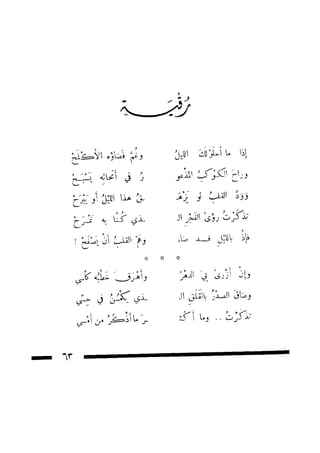 رُقْيَـــة
إذا ما احْلَوْلَكَ الليلُ وغُمَّ فضاؤه الأكْلَحْ
وراحَ الكوْكبُ المذْعو رُ في أنحائِه يَسْبَحْ
وَوَدَّ القلبُ لو يَزْهَـ ـقُ هذا الليْلُ أو يَبْرَحْ
تذكّرْتُ رؤىٰ الفَجْرِ الـ ـذي كُنَّا به نَمْرَحْ
فإذْ بالليْلِ قد ضاء وهَمَّ القلبُ أنْ يَصْفَحْ !
* * *
وإنْ أزْرىٰ بيَ الدهْرُ وأهْرَقَ خَطْبُه كأسي
وضاقَ الصدْرُ بالقَلَقِ الـ ـذي يَكْمُنُ في حِسّي
تذكّرْتُ .. وما أكْثَـ ـرَ ما أذْكُرُ من أمْسي
٦٣